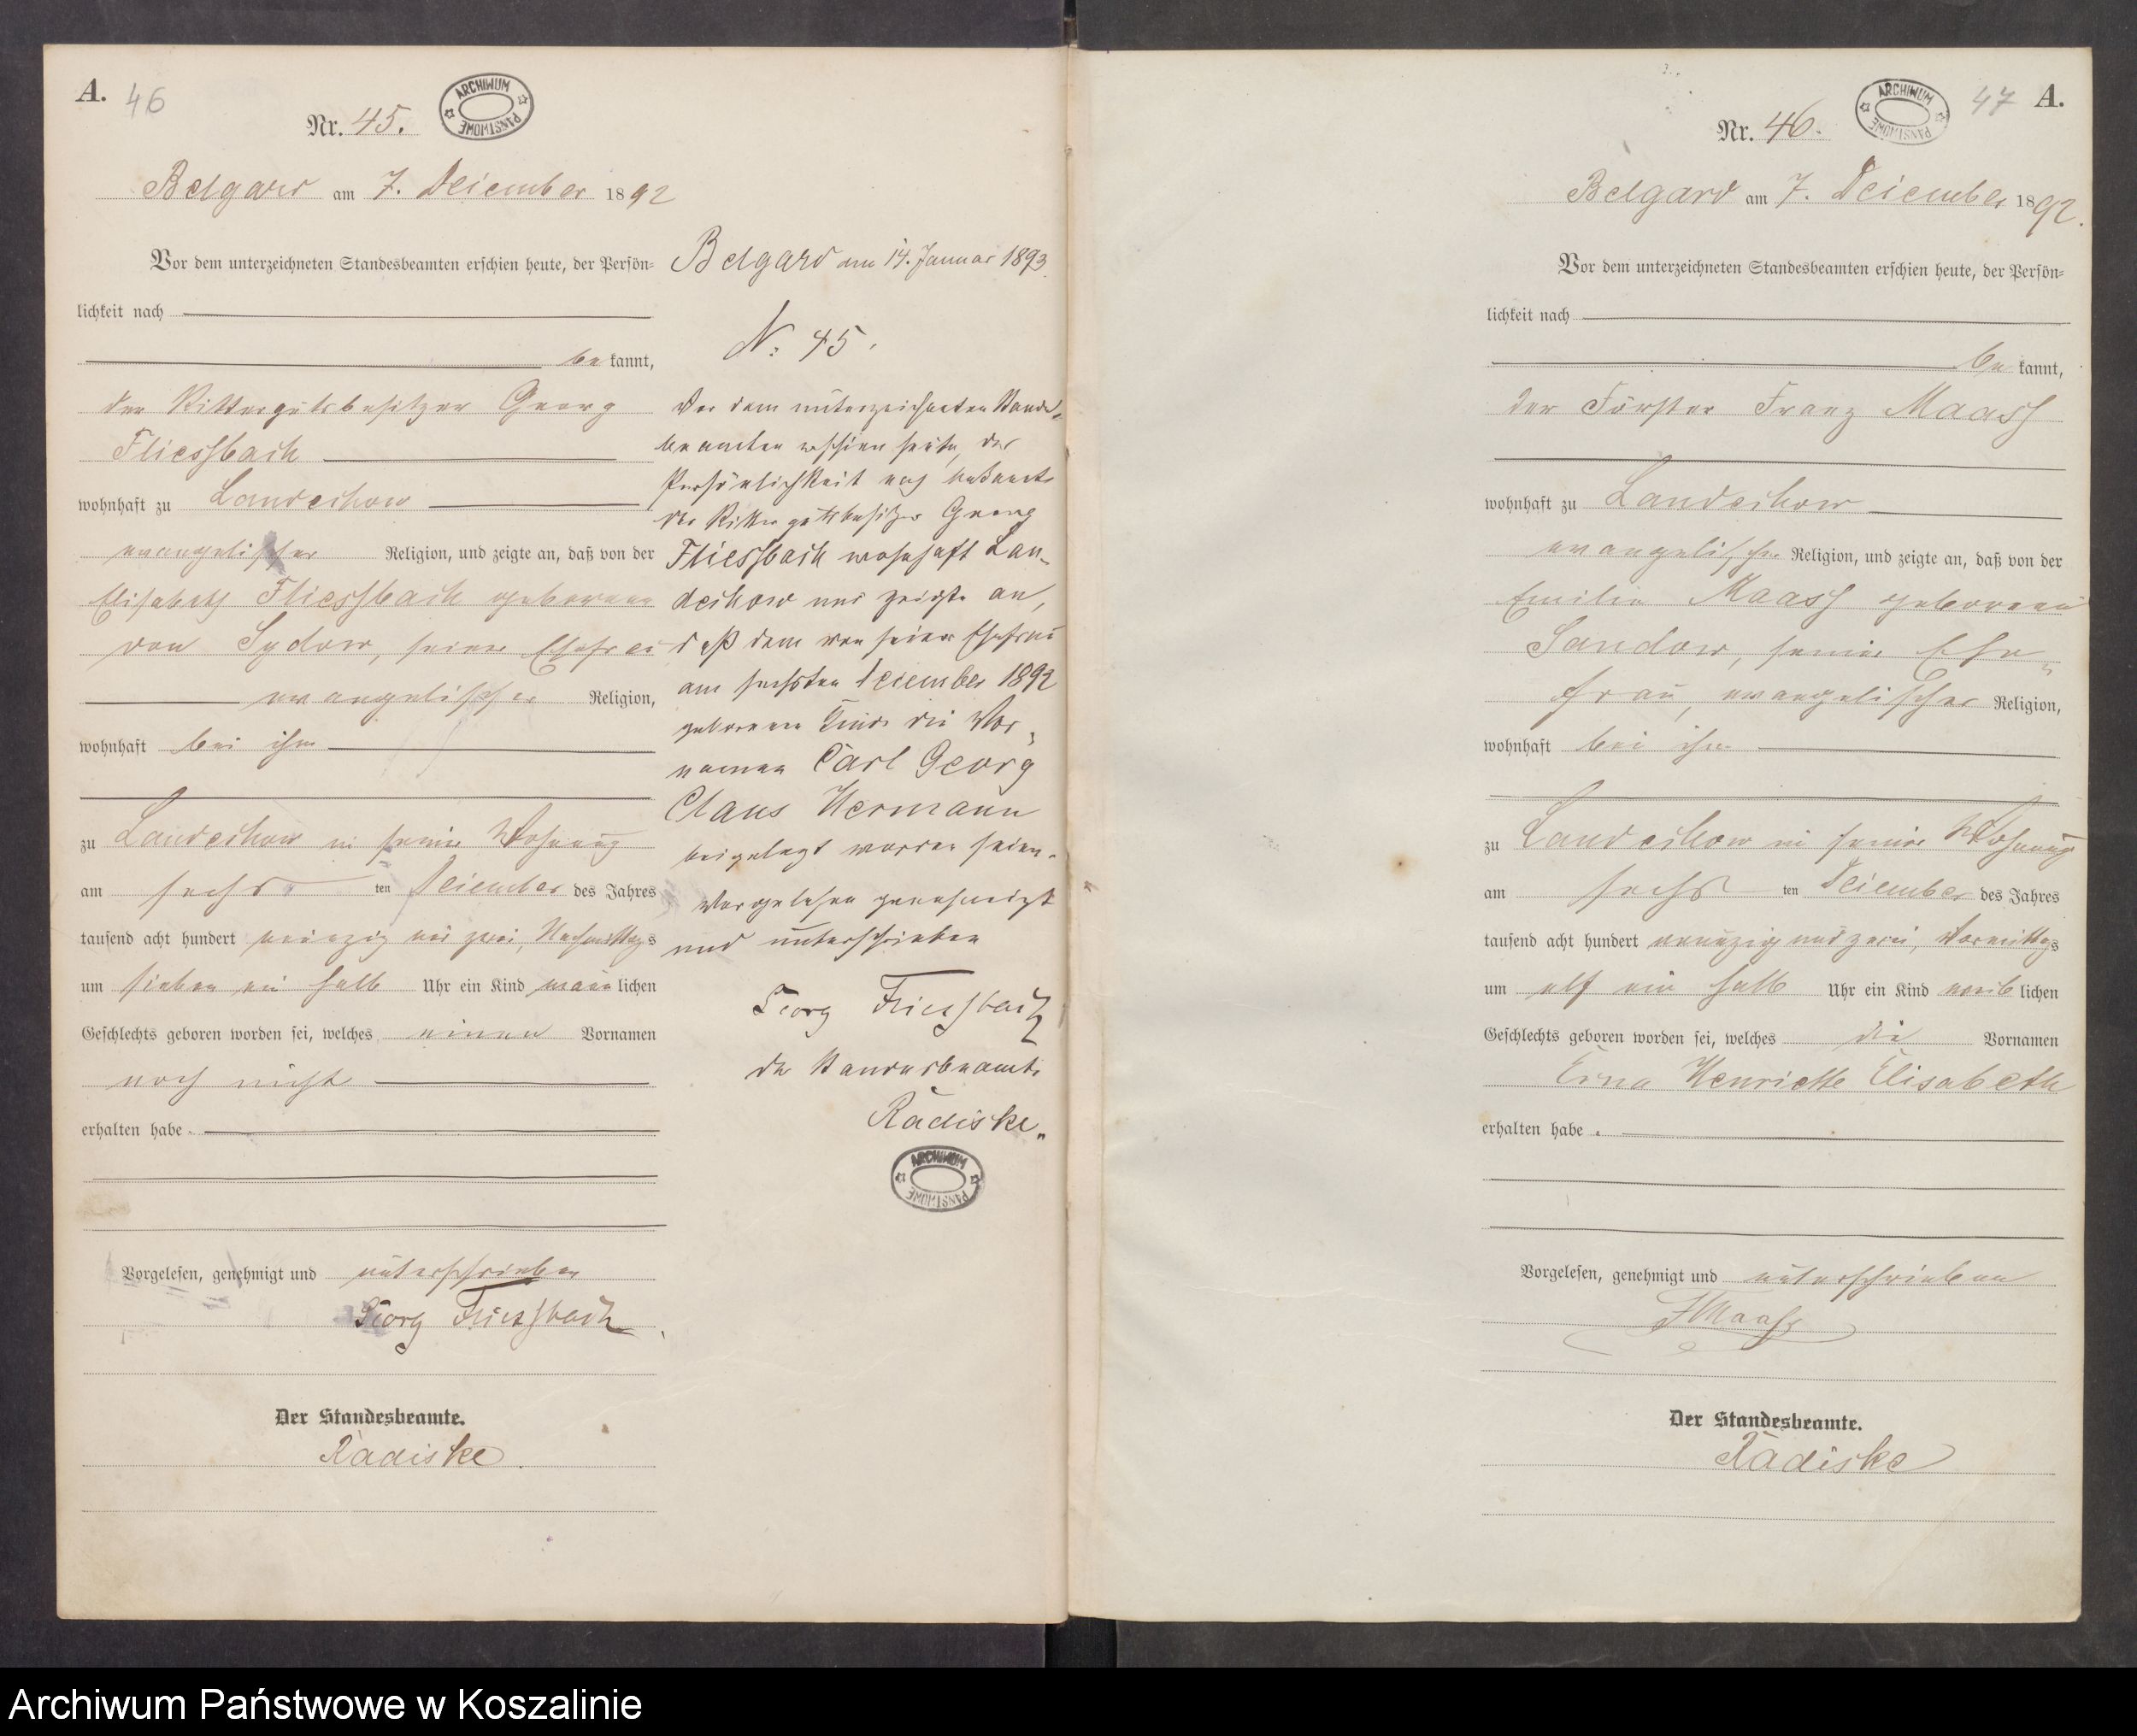 A. 46
Nr. 45.
ARCHIWUM PAŃSTWOWE
Belgard am 7. December 1892
Vor dem unterzeichneten Standesbeamten erschien heute, der Persön-
lichkeit nach
bekannt,
der Rittergutsbesitzer Georg
Fliessbach
wohnhaft zu Landechow
evangelischer Religion, und zeigte an, daß von der
Elisabeth Fliessbach geborenen
von Sydow, seiner Ehefrau
evangelischer Religion,
wohnhaft bei ihm
zu Landechow in seiner Wohnung
am sechsten December des Jahres
tausend acht hundert neunzig und zwei, Nachmittags
um sieben ein halb Uhr ein Kind männlichen
Geschlechts geboren worden sei, welches einen Vornamen
noch nicht
erhalten habe.
Vorgelesen, genehmigt und unterschrieben
Georg Fliessbach
Der Standesbeamte.
Radiske.
Belgard am 14. Januar 1893.
N: 45.
Vor dem unterzeichneten Standes-
beamten erschien heute, der
Persönlichkeit nach bekannt
der Rittergutsbesitzer Georg
Fliessbach wohnhaft Lan-
dechow und zeigte an,
daß dem von seiner Ehefrau
am sechsten December 1892
geborenen Kinde die Vor-
namen Carl Georg
Claus Hermann
beigelegt worden seien.
Vorgelesen genehmigt
und unterschrieben
Georg Fliessbach
der Standesbeamte
Radiske.
ARCHIWUM PAŃSTWOWE
47 A.
Nr. 46.
ARCHIWUM PAŃSTWOWE
Belgard am 7. December 1892.
Vor dem unterzeichneten Standesbeamten erschien heute, der Persön-
lichkeit nach
bekannt,
der Förster Franz Maass
wohnhaft zu Landechow
evangelischer Religion, und zeigte an, daß von der
Emilie Maass geborenen
Sandow, seiner Ehe-
frau, evangelischer Religion,
wohnhaft bei ihm
zu Landechow in seiner Wohnung
am sechsten December des Jahres
tausend acht hundert neunzig und zwei, Vormittags
um elf ein halb Uhr ein Kind weiblichen
Geschlechts geboren worden sei, welches die Vornamen
Erna Henriette Elisabeth
erhalten habe.
Vorgelesen, genehmigt und unterschrieben
F Maass
Der Standesbeamte.
Radiske
Archiwum Państwowe w Koszalinie